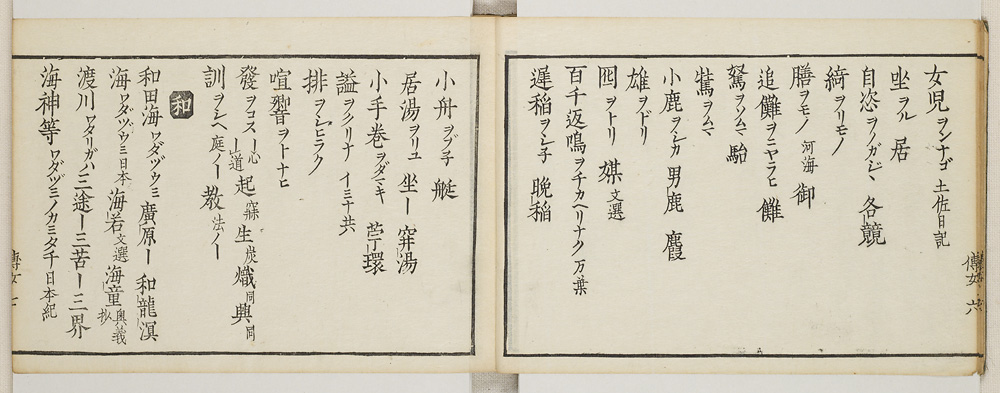 女児ヲンナゴ 土佐日記
坐ヲル 居
自恣ヲノガジヽ 各競
綺ヲリモノ
膳ヲモノ 河海 御
追儺ヲニヤラヒ 儺
駑ヲソムマ 駘
騺ヲムマ
小鹿ヲシカ 男鹿 麚
雄ヲドリ
囮ヲトリ 媒 文選
百千返鳴ヲチカヘリナク 万葉
遅稲ヲシ子 晩稲
傳女 六
小舟ヲブ子 艇
居湯ヲリユ 坐ー 穽湯
小手巻ヲダマキ 苧環
謚ヲクリナ イミナ共
排ヲシヒラク
喧響ヲトナヒ
發ヲコス ー心 ー道 起 寐 生 炭 熾 同 興 同
訓ヲシヘ 庭ノー 教 法ノー
和
和田海ワダヅウミ 廣原ー 和龍溟
海ワダヅウミ 日本 海若 文選 海童 奥義抄
渡川ワタリガハ 三途ー 三苦ー 三界
海神等ワダヅミノカミタチ 日本紀
傳女 七